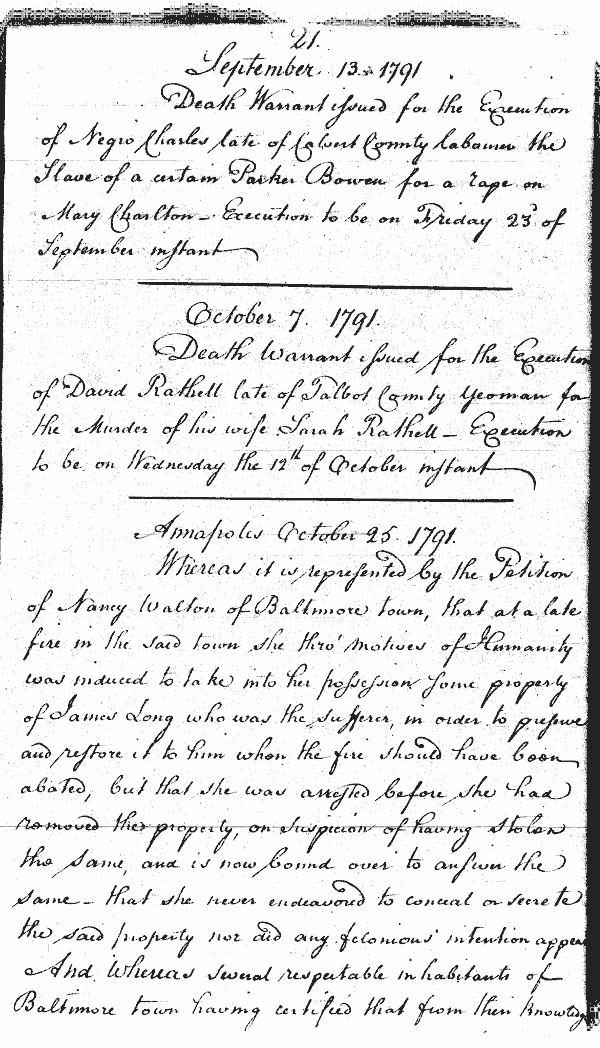 21.
September. 13. 1791
Death Warrant issued for the Execution
of Negro Charles late of Calvert County labourer the
Slave of a certain Parker Bowen for a rape on
Mary Charlton - Execution to be on Friday 23d of
September instant
October 7. 1791.
Death Warrant issued for the Execution
of David Rathell late of Talbot County Yeoman for
the Murder of his wife Sarah Rathell - Execution
to be on Wednesday the 12th of October instant
Annapolis October 25. 1791.
Whereas it is represented by the Petition
of Nancy Walton of Baltimore town, that at a late
fire in the said town she thro' motives of Humanity
was induced to take into her possession some property
of James Long who was the sufferer, in order to preserve
and restore it to him when the fire should have been
abated, but that she was arrested before she had
removed the property, on suspicion of having stolen
the same, and is now bound over to answer the
same - that she never endeavored to conceal or secrete
the said property nor did any felonious intention appear
And Whereas several respectable inhabitants of
Baltimore town having certified that from their knowledg